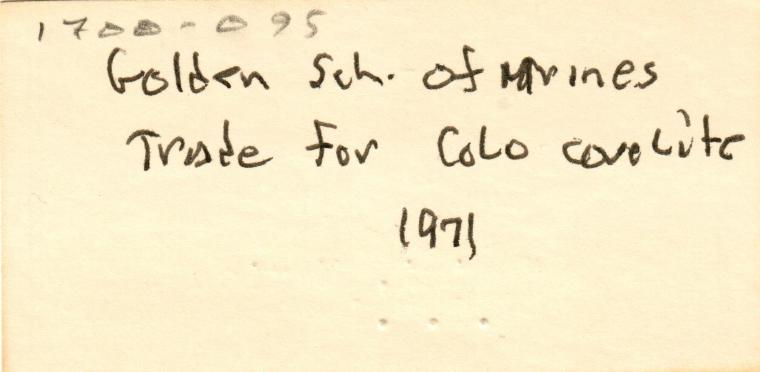 1700-095
Golden Sch. of Mines
Trade For Colo covelite
1971